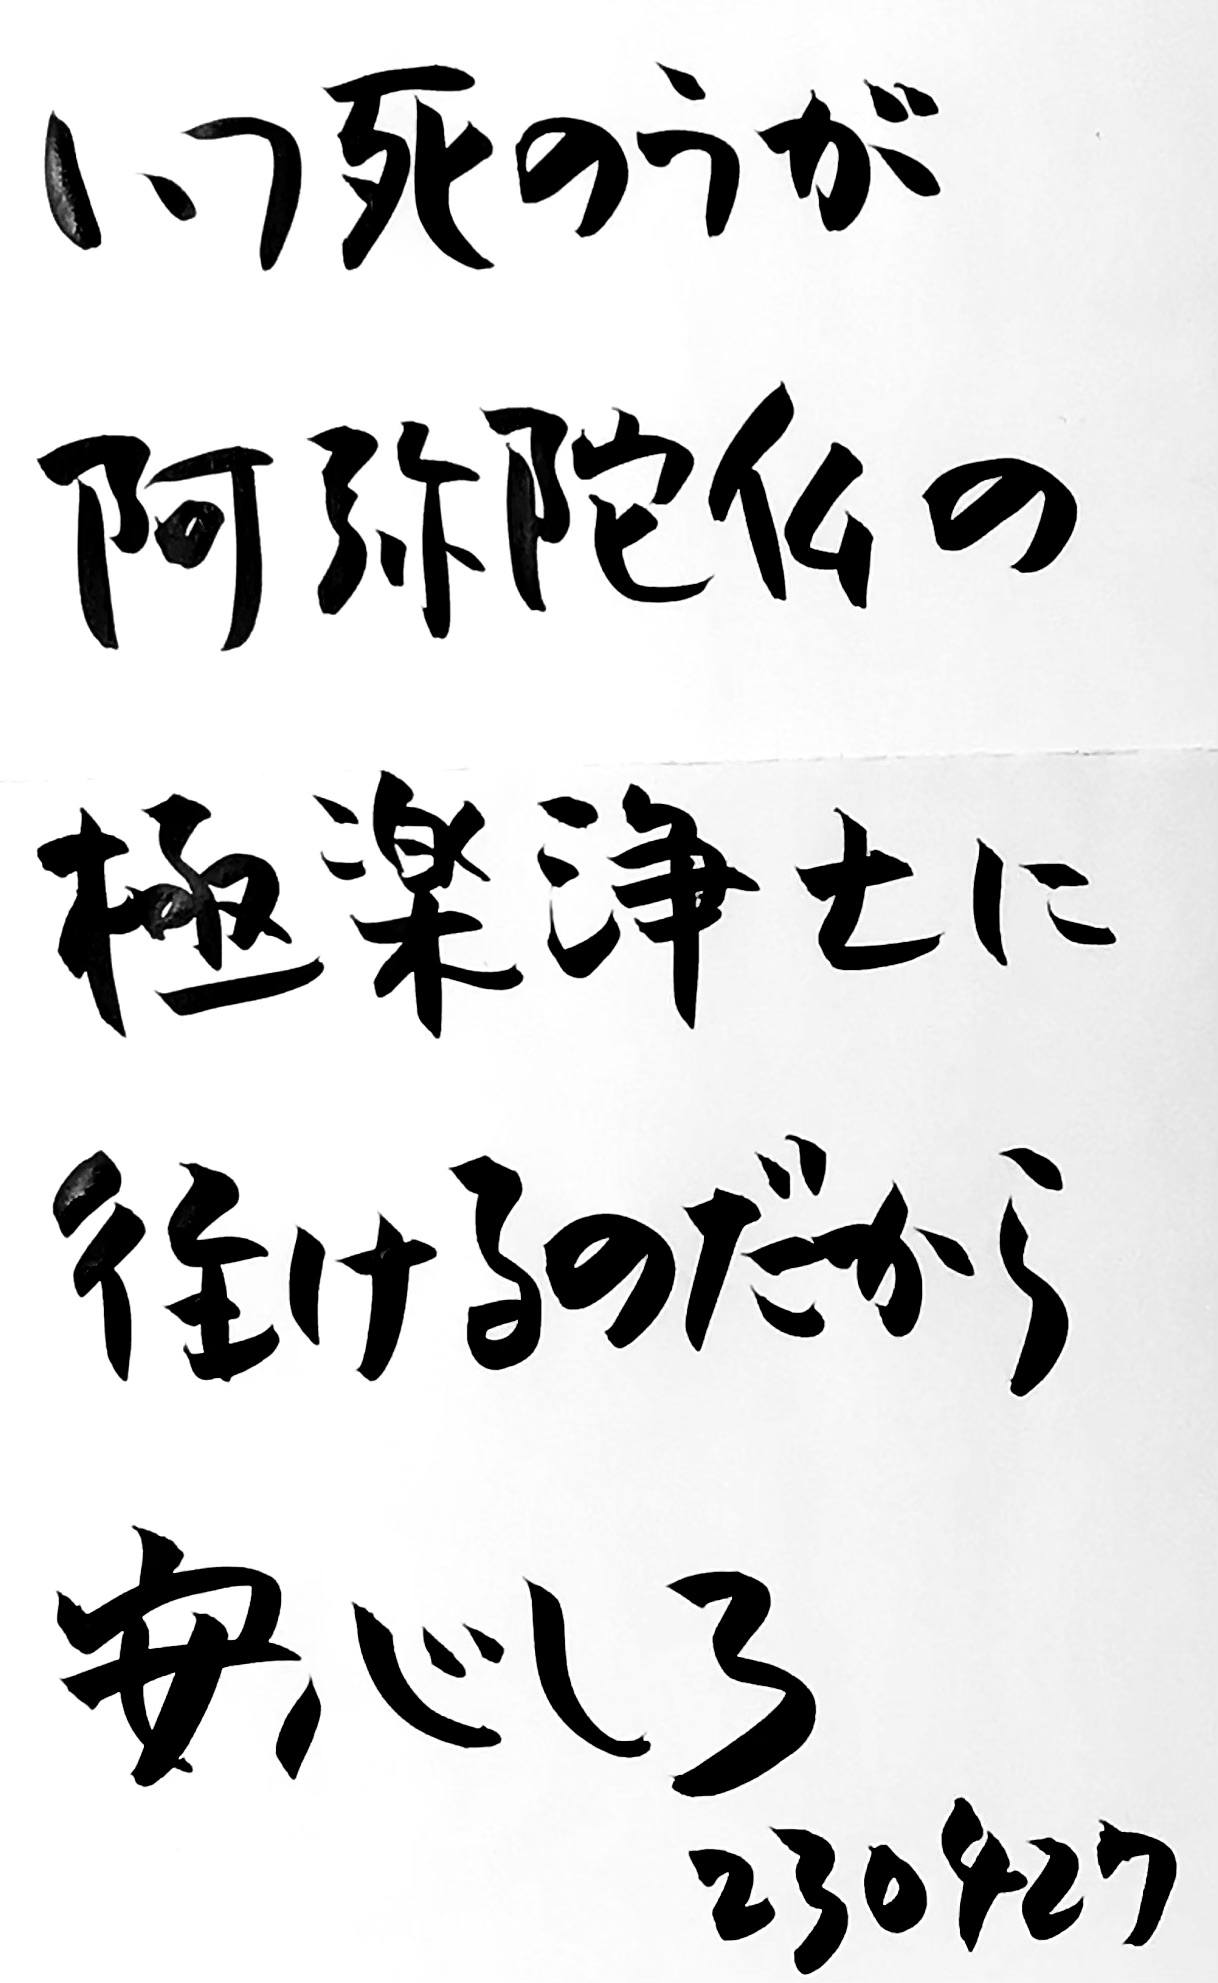 いつ死のうが
阿弥陀仏の
極楽浄土に
往けるのだから
安心しろ
230427